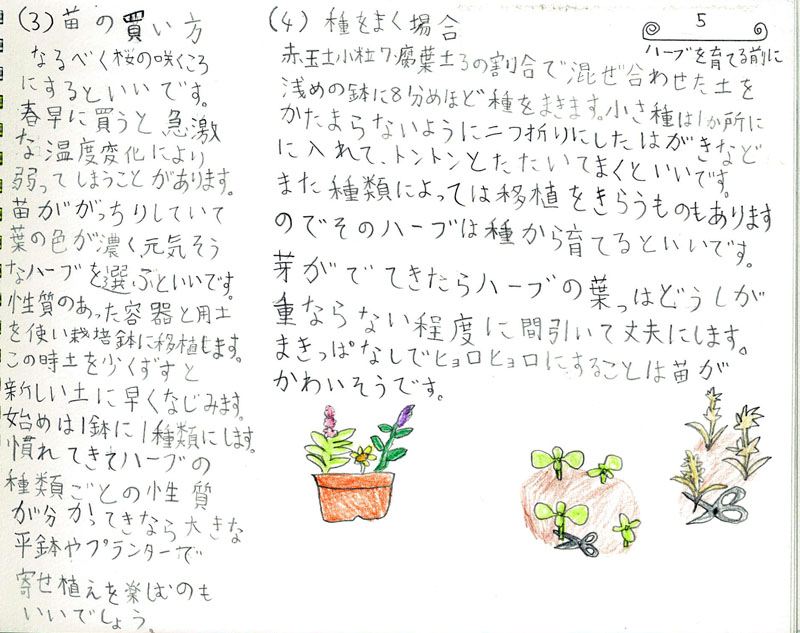 5
ハーブを育てる前に
(3) 苗の買い方
なるべく桜の咲くころ
にするといいです。
春早に買うと急激
な温度変化により
弱ってしまうことがあります。
苗ががっちりしていて
葉の色が濃く元気そう
なハーブを選ぶといいです。
性質のあった容器と用土
を使い栽培鉢に移植します。
この時土を少くずすと
新しい土に早くなじみます。
始めは1鉢に1種類にします。
慣れてきてハーブの
種類ごとの性質
が分かってきなら大きな
平鉢やプランターで
寄せ植えを楽むのも
いいでしょう。
(4) 種をまく場合
赤玉土小粒7.腐葉土3の割合で混ぜ合わせた土を
浅めの鉢に8分めほど種をまきます。小さ種は1か所に
かたまらないように二つ折りにしたはがきなど
に入れて、トントンとたたいてまくといいです。
また種類によっては移植をきらうものもあります
のでそのハーブは種から育てるといいです。
芽がでてきたらハーブの葉っはどうしが
重ならない程度に間引いて丈夫にします。
まきっぱなしでヒョロヒョロにすることは苗が
かわいそうです。